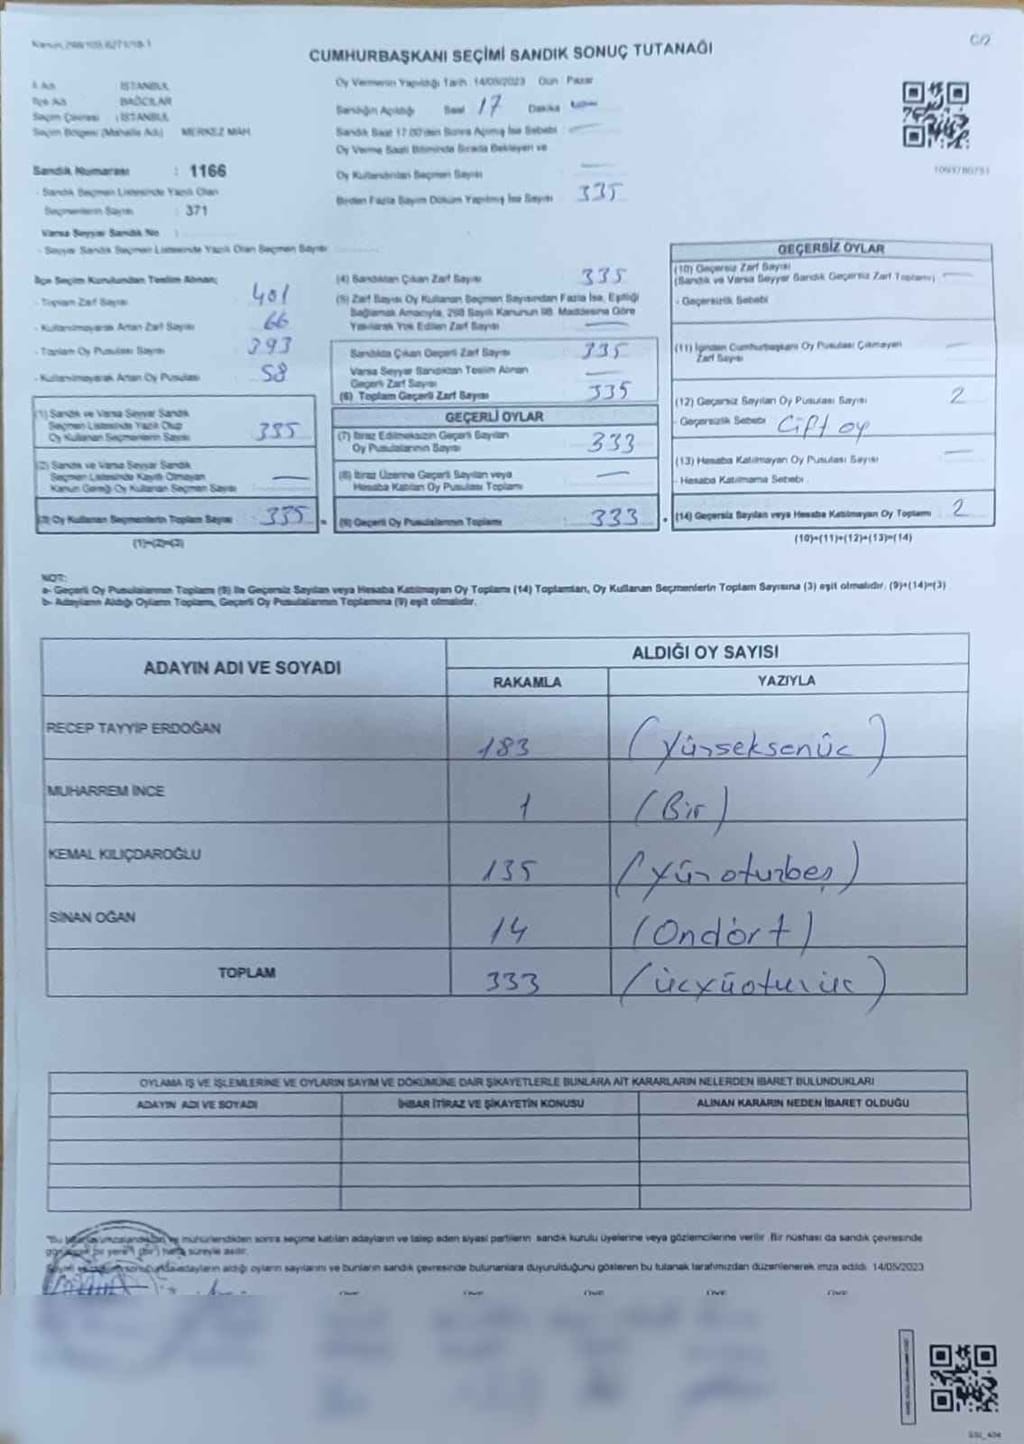 C/2
CUMHURBAŞKANI SEÇİMİ SANDIK SONUÇ TUTANAĞI
İl Adı : İSTANBUL
İlçe Adı : BAĞCILAR
Seçim Çevresi : İSTANBUL
Seçim Bölgesi (Mahalle Adı) : MERKEZ MAH.
Sandık Numarası : 1166
- Sandık Seçmen Listesinde Yazılı Olan
Seçmenlerin Sayısı : 371
Varsa Seyyar Sandık No :
- Seyyar Sandık Seçmen Listesinde Yazılı Olan Seçmen Sayısı
Oy Vermenin Yapıldığı Tarih 14/05/2023 Gün Pazar
Sandığın Açıldığı Saat 17 Dakika
Sandık Saat 17.00'den Sonra Açılmış İse Sebebi
Oy Verme Saati Bitiminde Sırada Bekleyen ve
Oy Kullandırılan Seçmen Sayısı
Birden Fazla Sayım Döküm Yapılmış İse Sayısı 335
İlçe Seçim Kurulundan Teslim Alınan;
- Toplam Zarf Sayısı 401
- Kullanılmayarak Artan Zarf Sayısı 66
- Toplam Oy Pusulası Sayısı 393
- Kullanılmayarak Artan Oy Pusulası 58
(1) Sandık ve Varsa Seyyar Sandık
Seçmen Listesinde Yazılı Olup
Oy Kullanan Seçmenlerin Sayısı 335
(2) Sandık ve Varsa Seyyar Sandık
Seçmen Listesinde Kayıtlı Olmayan
Kanun Gereği Oy Kullanan Seçmen Sayısı
(3) Oy Kullanan Seçmenlerin Toplam Sayısı 335
(1)+(2)=(3)
(4) Sandıktan Çıkan Zarf Sayısı 335
(5) Zarf Sayısı Oy Kullanan Seçmen Sayısından Fazla İse, Eşitliği
Sağlamak Amacıyla, 298 Sayılı Kanunun 98. Maddesine Göre
Yakılarak Yok Edilen Zarf Sayısı
Sandıkta Çıkan Geçerli Zarf Sayısı 335
Varsa Seyyar Sandıktan Teslim Alınan
Geçerli Zarf Sayısı
(6) Toplam Geçerli Zarf Sayısı 335
GEÇERLİ OYLAR
(7) İtiraz Edilmeksizin Geçerli Sayılan
Oy Pusulalarının Sayısı 333
(8) İtiraz Üzerine Geçerli Sayılan veya
Hesaba Katılan Oy Pusulası Toplamı
(9) Geçerli Oy Pusulalarının Toplamı 333
GEÇERSİZ OYLAR
(10) Geçersiz Zarf Sayısı
(Sandık ve Varsa Seyyar Sandık Geçersiz Zarf Toplamı)
- Geçersizlik Sebebi
(11) İçinden Cumhurbaşkanı Oy Pusulası Çıkmayan
Zarf Sayısı
(12) Geçersiz Sayılan Oy Pusulası Sayısı 2
- Geçersizlik Sebebi Çift oy
(13) Hesaba Katılmayan Oy Pusulası Sayısı
- Hesaba Katılmama Sebebi
(14) Geçersiz Sayılan veya Hesaba Katılmayan Oy Toplamı 2
(10)+(11)+(12)+(13)=(14)
NOT:
a- Geçerli Oy Pusulalarının Toplamı (9) ile Geçersiz Sayılan veya Hesaba Katılmayan Oy Toplamı (14) Toplamları, Oy Kullanan Seçmenlerin Toplam Sayısına (3) eşit olmalıdır. (9)+(14)=(3)
b- Adayların Aldığı Oyların Toplamı, Geçerli Oy Pusulalarının Toplamına (9) eşit olmalıdır.
ADAYIN ADI VE SOYADI ALDIĞI OY SAYISI
RAKAMLA YAZIYLA
RECEP TAYYİP ERDOĞAN 183 (Yüzseksenüc)
MUHARREM İNCE 1 (Bir)
KEMAL KILIÇDAROĞLU 135 (Yüzoturbeş)
SİNAN OĞAN 14 (Ondört)
TOPLAM 333 (ücyüoturüc)
OYLAMA İŞ VE İŞLEMLERİNE VE OYLARIN SAYIM VE DÖKÜMÜNE DAİR ŞİKAYETLERLE BUNLARA AİT KARARLARIN NELERDEN İBARET BULUNDUKLARI
ADAYIN ADI VE SOYADI İHBAR İTİRAZ VE ŞİKAYETİN KONUSU ALINAN KARARIN NEDEN İBARET OLDUĞU
mühürlendikten sonra seçime katılan adayların ve talep eden siyasi partilerin sandık kurulu üyelerine veya gözlemcilerine verilir. Bir nüshası da sandık çevresinde
bir yere (bir) hafta süreyle asılır.
adayların aldığı oyların sayılarını ve bunların sandık çevresinde bulunanlara duyurulduğunu gösteren bu tutanak tarafımızdan düzenlenerek imza edildi. 14/05/2023